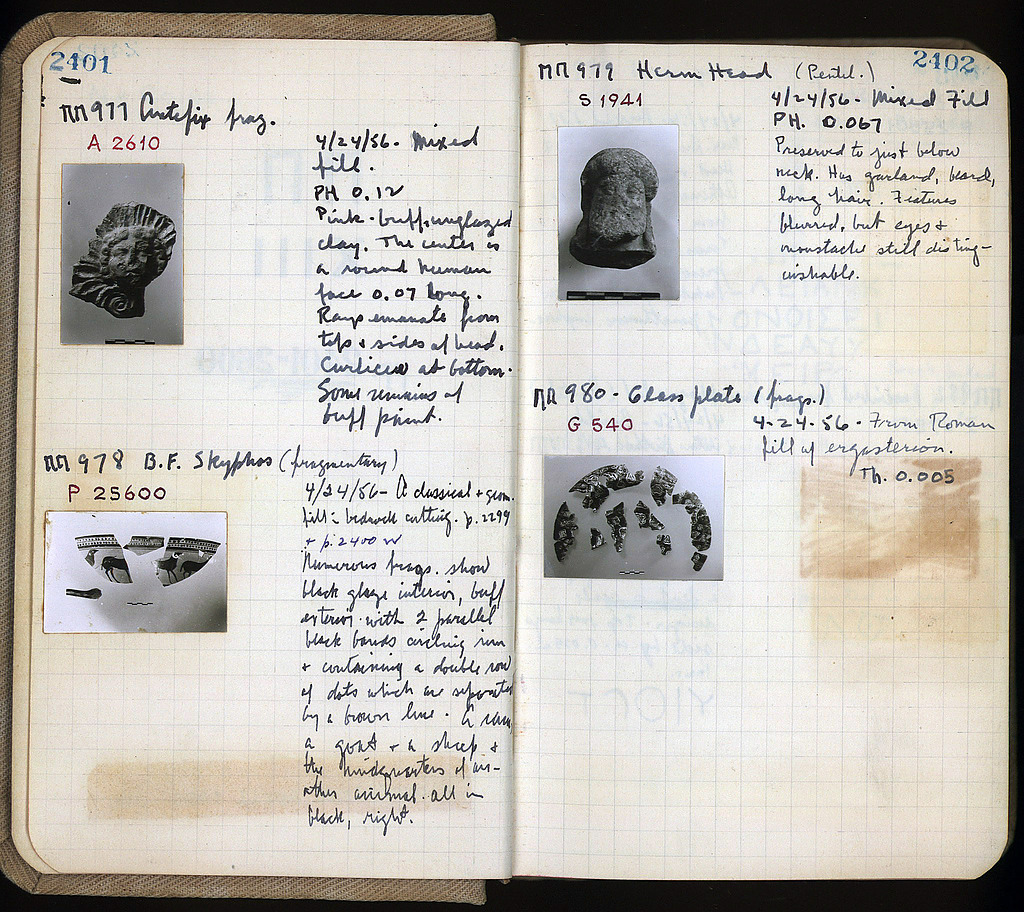 2401
ΠΠ 977 Antefix frag.
A 2610
4/24/56 - Mixed
fill.
PH 0.12
Pink-buff, unglazed
clay. The center is
a round human
face 0.07 long.
Rays emanate from
top & sides of head.
Curlicew at bottom.
Some remains of
buff paint.
ΠΠ 978 B.F. Skyphos (fragmentary)
P 25600
4/24/56 - A classical + geom.
fill = bedrock cutting. p. 2299
+ p. 2400
Numerous frags. show
black glaze interior, buff
exterior with 2 parallel
black bands circling rim
& containing a double row
of dots which are separated
by a brown line. A ram,
a goat & a sheep &
the hindquarters of an-
other animal all in
black, right.
2402
ΠΠ 979 Herm Head (Pentel.)
S 1941
4/24/56 - Mixed Fill
PH. 0.067
Preserved to just below
neck. Has garland, beard,
long hair. Features
blurred, but eyes &
moustache still disting-
uishable.
ΠΠ 980 - Glass plate (frags.)
G 540
4-24-56 - From Roman
fill of ergasterion.
Th. 0.005